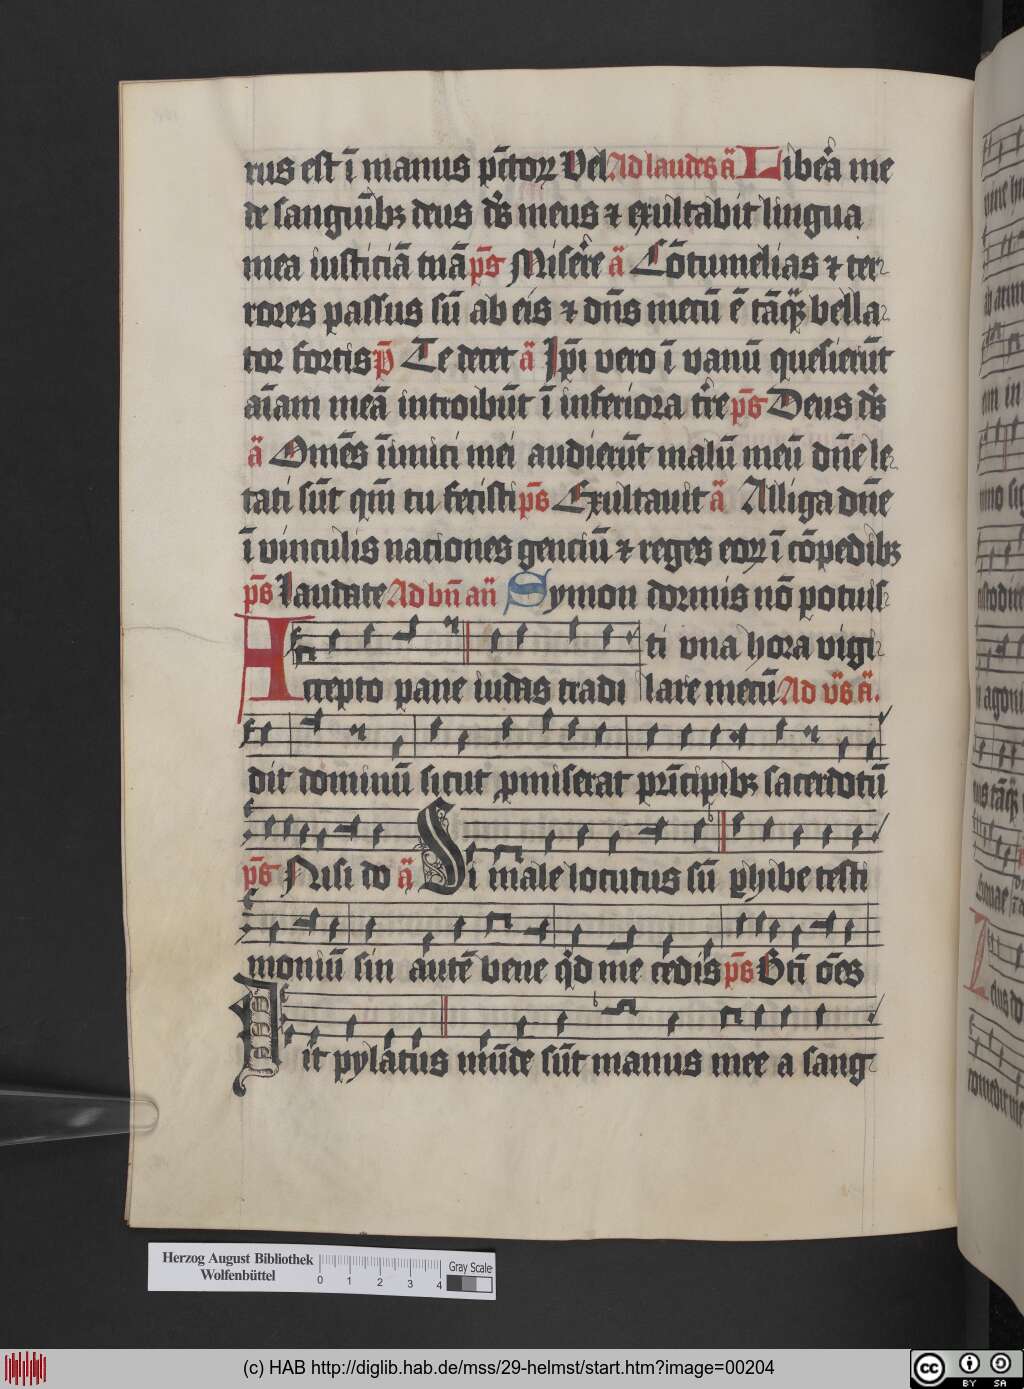 rus est ī manus pc̄torꝝ Vel Ad laudes a᷑ Libera me
de sanguīb; deus ds̄ meus ⁊ exultabit lingua
mea iusticiā tuā ps̄ Miserere a᷑ Cōtumelias ⁊ ter
rores passus sū ab eis ⁊ dn̄s mecū ē tāq̄ bella
tor fortis p̄ Te decet a᷑ Ip̄i vero ī vanū quesierūt
aīam meā introibūt ī inferiora tr̄re ps̄ Deus ds̄
a᷑ Omēs īimici mei audierūt malū meū dn̄e le
tati sūt qm̄ tu fecisti ps̄ Exultauit a᷑ Alliga dn̄e
ī vinculis naciones genciū ⁊ reges eoꝝ ī cōpedib;
ps̄ Laudate Ad bn̄ an̄ Symon dormis nō potuis
ti vna hora vigi
Accepto pane iudas tradi lare mecū Ad vs̄ a᷑.
dit dominū sicut ꝓmiserat prīcipib; sacerdotū
ps̄ Nisi do a᷑ Si male locutus sū ꝑhibe testi
moniū sin autē bene qd̄ me cedis ps̄ Bt̄i oēs
Ait pylatus mūde sūt manus mee a sang
Herzog August Bibliothek
Wolfenbüttel
0 1 2 3 4
Gray Scale
(c) HAB http://diglib.hab.de/mss/29-helmst/start.htm?image=00204
cc BY SA